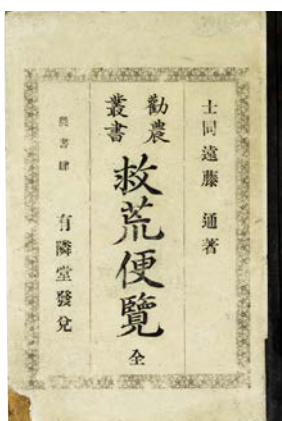 士同遠藤 通著
勸農
叢書
救荒便覽
全
農書肆 有隣堂發兌